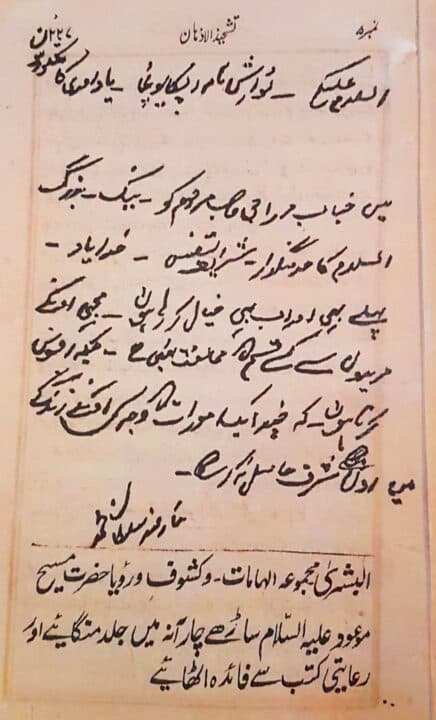 نمبر ۵ تشحیذ الاذہان
السلام علیکم ۔ نوازش نامہ آپکا پہونچا ۔ یاد آوری کا مشکور ہوں
میں جناب مرزا جی صاحب مرحوم کو ۔ نیک ۔ بزرگ
اسلام کا خدمتگذار ۔ شریف النفس ۔ خدا یاد ۔
پہلے بھی اور اب بھی خیال کر رہا ہوں ۔ مجھے انکے
مریدوں سے کسی قسم کی مخالفت نہیں ہے ۔ بلکہ افسوس
کرتا ہوں ۔ کہ چند ایک امورات کی وجہ سے انکی زندگی
میں ان کا شرف حاصل نہ کر سکا ۔
نیازمند سلطان محمد
البشریٰ مجموعہ الہامات ۔ وکشوف ورؤیا حضرت مسیح
موعود علیہ السّلام ساڑھے چار آنہ میں جلد منگائیے اور
رعایتی کتب سے فائدہ اٹھائیے